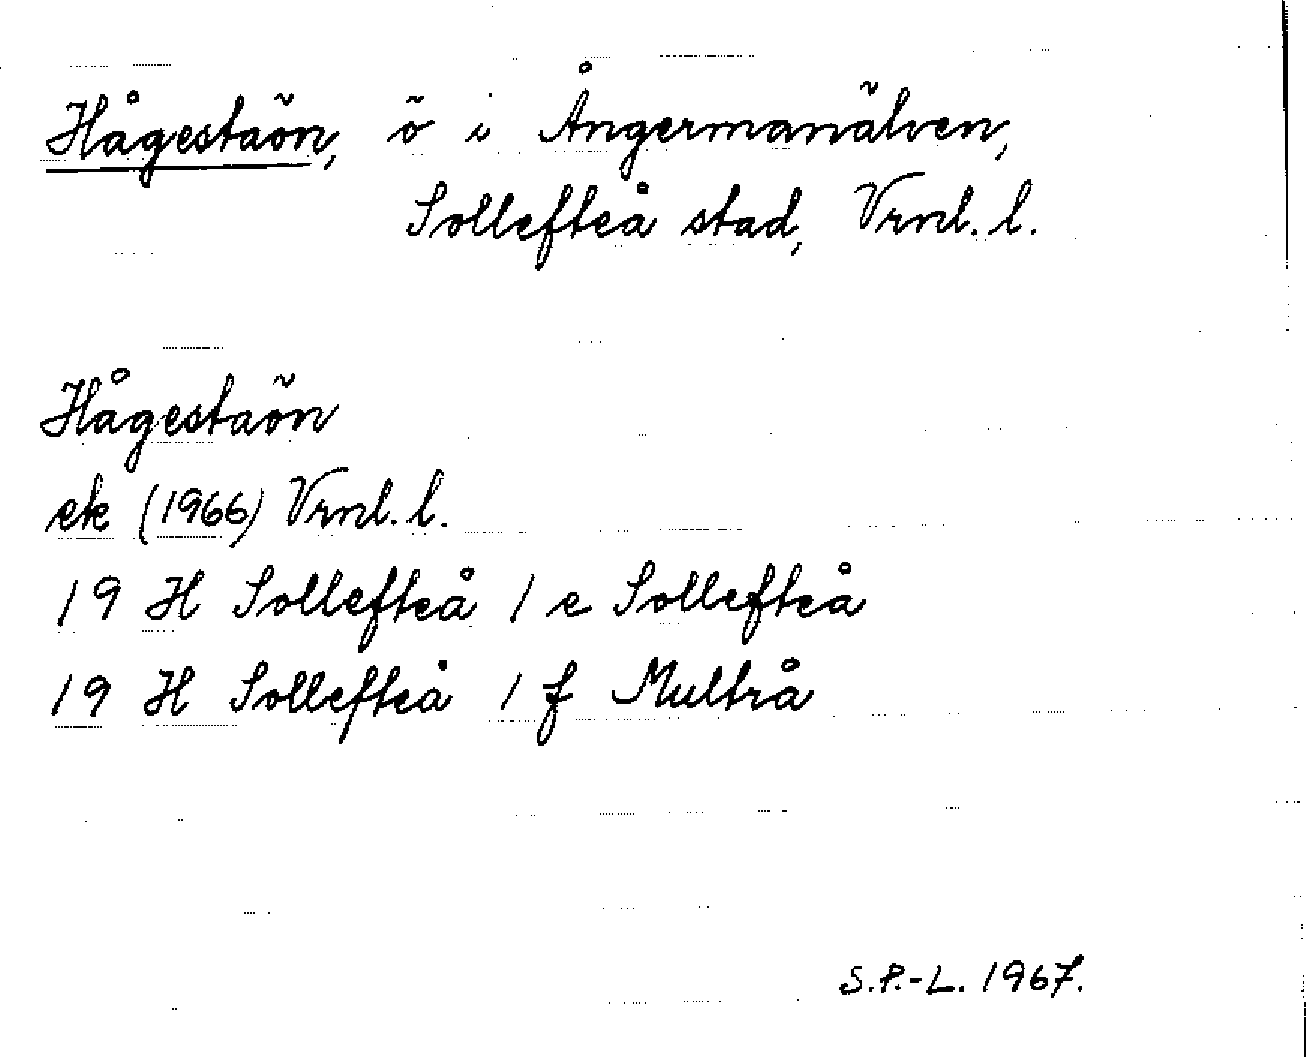 Hågestaön, ö i Ångermanälven,
Sollefteå stad, Vrnl. l.
Hågestaön
ek (1966) Vrnl. l.
19 H Sollefteå 1 e Sollefteå
19 H Sollefteå 1 f Multrå
S.P.-L. 1967.